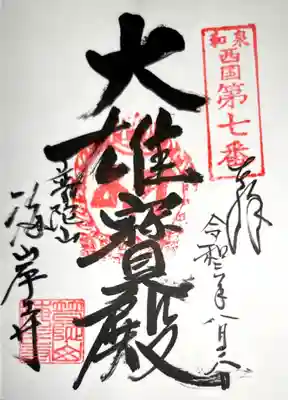 和泉
西国第七番
奉拝
令和二年八月二八日
大雄寳殿
普陀山
海岸寺